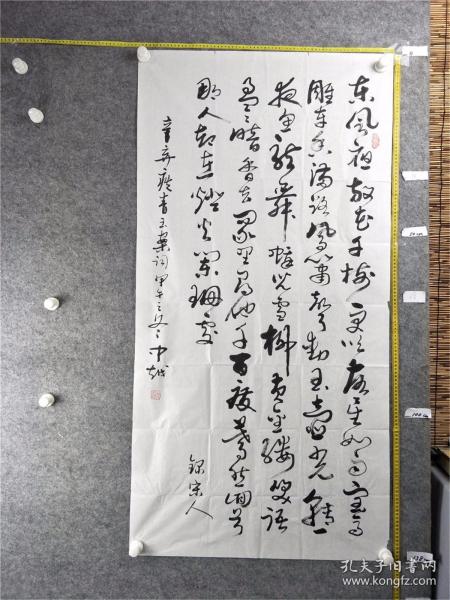 东风夜放花千树更吹落星如雨宝马
雕车香满路凤箫声动玉壶光转一
夜鱼龙舞蛾儿雪柳黄金缕笑语
盈盈暗香去众里寻他千百度蓦然回首
那人却在灯火阑珊处
辛弃疾青玉案词甲午之冬
孔夫子旧书网
www.kongfz.com